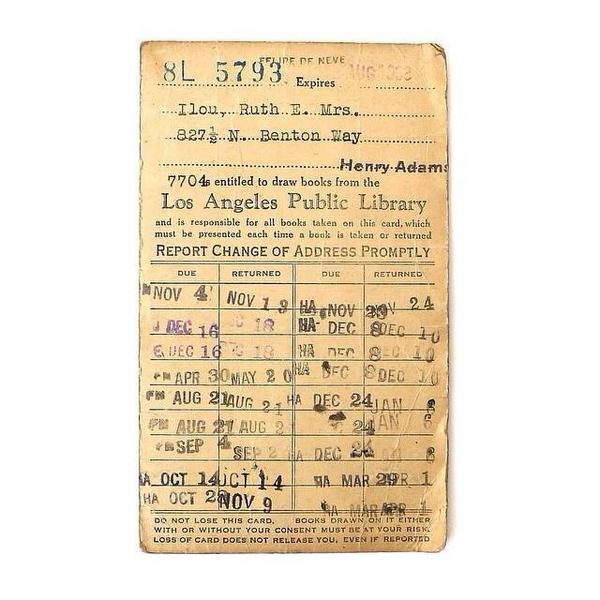 FELIPE DE NEVE
8L 5793 AUG
Expires
Ilou, Ruth E. Mrs.
827½ N. Benton Way
Henry Adams
7704s entitled to draw books from the
Los Angeles Public Library
and is responsible for all books taken on this card, which
must be presented each time a book is taken or returned
REPORT CHANGE OF ADDRESS PROMPTLY
DUE RETURNED DUE RETURNED
NOV 4 NOV 13 HA NOV NOV 24
DEC 16 18 HA DEC 8 DEC 10
DEC 16 18 HA DEC 8 DEC 10
PM APR 30 MAY 20 HA DEC 8 DEC 10
PM AUG 21 AUG 21 HA DEC 24 JAN 6
PM AUG 21 AUG 2 24 JAN 6
PM SEP 4 SEP 2 HA DEC 24 6
HA OCT 14 OCT 14 HA MAR 29 APR 1
HA OCT NOV 9 HA MAR APR 1
DO NOT LOSE THIS CARD. BOOKS DRAWN ON IT EITHER
WITH OR WITHOUT YOUR CONSENT MUST BE AT YOUR RISK.
LOSS OF CARD DOES NOT RELEASE YOU, EVEN IF REPORTED